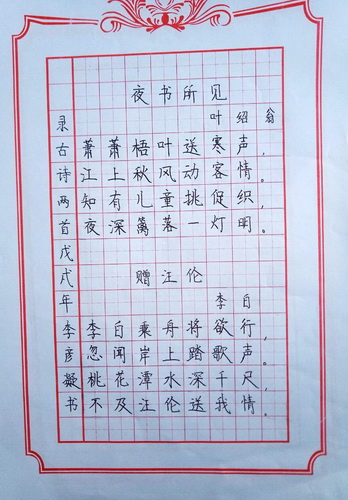 夜书所见
叶绍翁
萧萧梧叶送寒声,
江上秋风动客情。
知有儿童挑促织,
夜深篱落一灯明。
赠汪伦
李白
李白乘舟将欲行,
忽闻岸上踏歌声。
桃花潭水深千尺,
不及汪伦送我情。
录古诗两首戊戌年李彦凝书